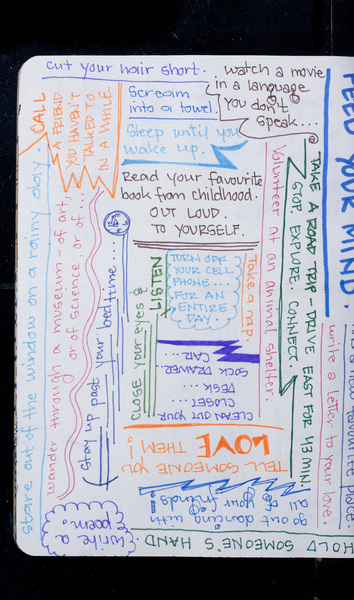 cut your hair short.
watch a movie
in a language
you don't
speak...
CALL
A FRIEND
YOU HAVEN'T
TALKED TO
IN A WHILE.
Scream
into a towel.
Sleep until you
wake up.
Read your favourite
book from childhood.
OUT LOUD.
TO YOURSELF.
FEED YOUR MIND.
TAKE A ROAD TRIP - DRIVE EAST FOR 43 MIN.
STOP. EXPLORE. CONNECT
Volunteer at an animal shelter.
write a letter to your love.
favourite place.
stare out of the window on a rainy day
wander through a museum - of art,
or of science, or of...
Stay up past your bedtime...
Close your eyes &
LISTEN
TURN OFF
YOUR CELL
PHONE...
FOR AN
ENTIRE
DAY.
Take a nap.
CLEAN OUT YOUR
CLOSET...
DESK...
SOCK DRAWER...
CAR...
TELL SOMEONE YOU
LOVE
THEM!
go out dancing with
all of your friends!
write a
poem.
HOLD SOMEONE'S HAND.